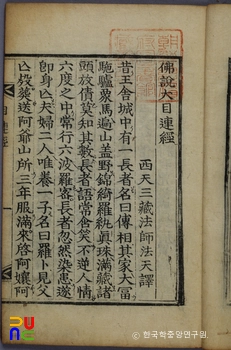 佛說大目連經
西天三藏法師法天譯
昔王舍城中有一長者名曰傅相其家大富
駝驢象馬遍山盖野錦綺羅紈眞珠滿藏諸
頭放債莫知其數長者語常含笑不逆人情
六度之中常行六波羅密長者忽然染患遂
卽身亡夫婦二人唯養一子名曰羅卜見父
亡歿葬送阿爺山所三年服滿來啓阿孃阿
目連經
한국학중앙연구원